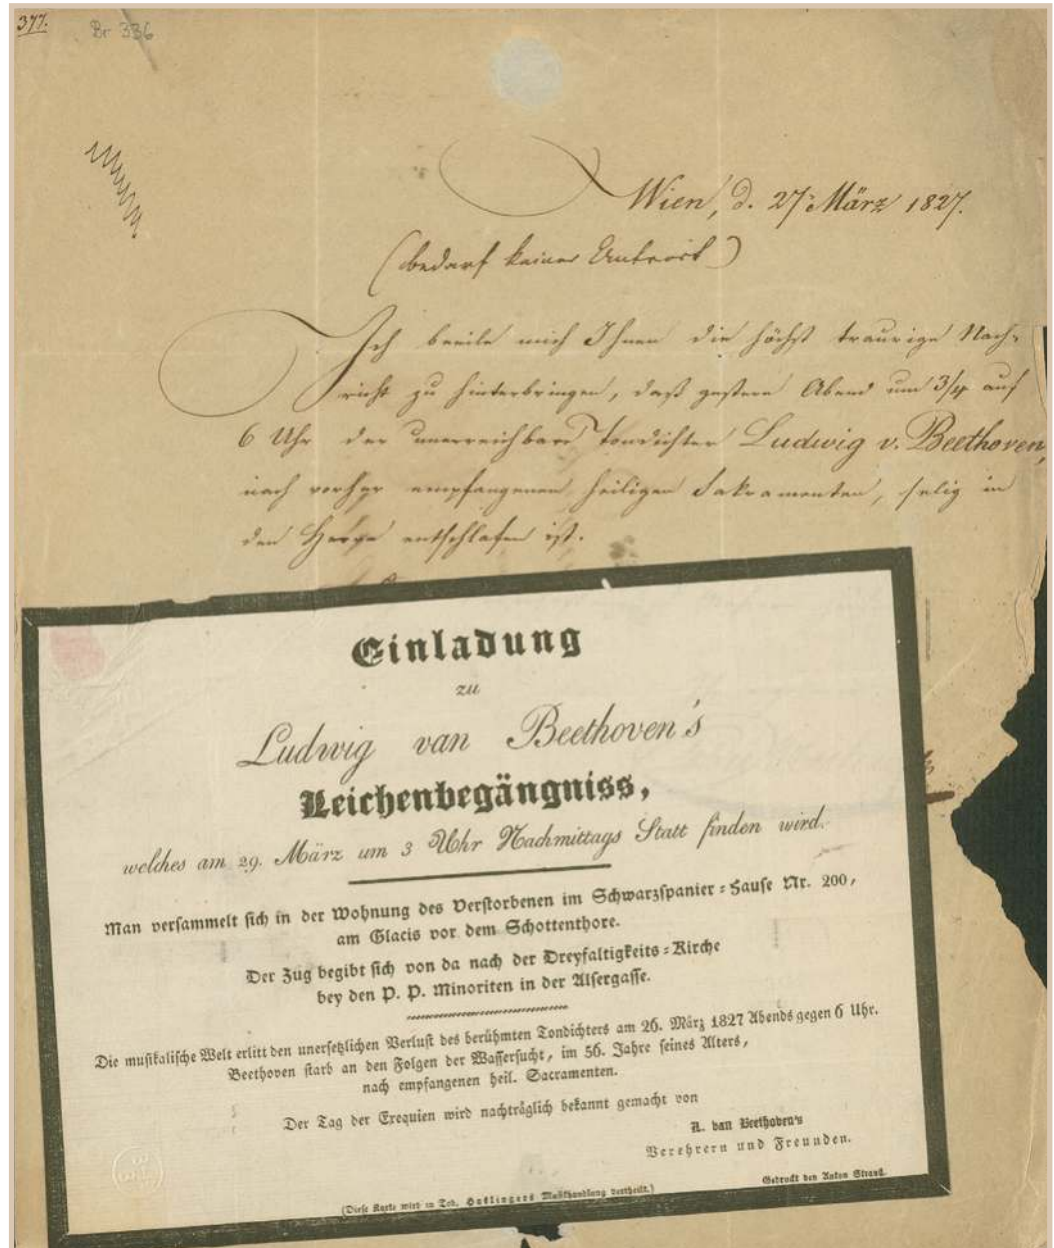 377.
Br 336
Wien, d. 27. März 1827.
(bedarf keiner Antwort)
Ich beeile mich Ihnen die höchst traurige Nach-
richt zu hinterbringen, daß gestern Abend um 3/4 auf
6 Uhr der unerreichbare Tondichter Ludwig v. Beethoven,
nach vorher empfangenen heiligen Sakramenten, selig in
den Herrn entschlafen ist.
Einladung
zu
Ludwig van Beethoven's
Leichenbegängniss,
welches am 29. März um 3 Uhr Nachmittags Statt finden wird.
Man versammelt sich in der Wohnung des Verstorbenen im Schwarzspanier=Hause Nr. 200,
am Glacis vor dem Schottenthore.
Der Zug begibt sich von da nach der Dreyfaltigkeits=Kirche
bey den P. P. Minoriten in der Alsergasse.
Die musikalische Welt erlitt den unersetzlichen Verlust des berühmten Tondichters am 26. März 1827 Abends gegen 6 Uhr.
Beethoven starb an den Folgen der Wassersucht, im 56. Jahre seines Alters,
nach empfangenen heil. Sacramenten.
Der Tag der Exequien wird nachträglich bekannt gemacht von
L. van Beethoven's
Verehrern und Freunden.
Gedruckt bey Anton Strauß.
(Diese Karte wird in Tob. Haslingers Musikhandlung vertheilt.)